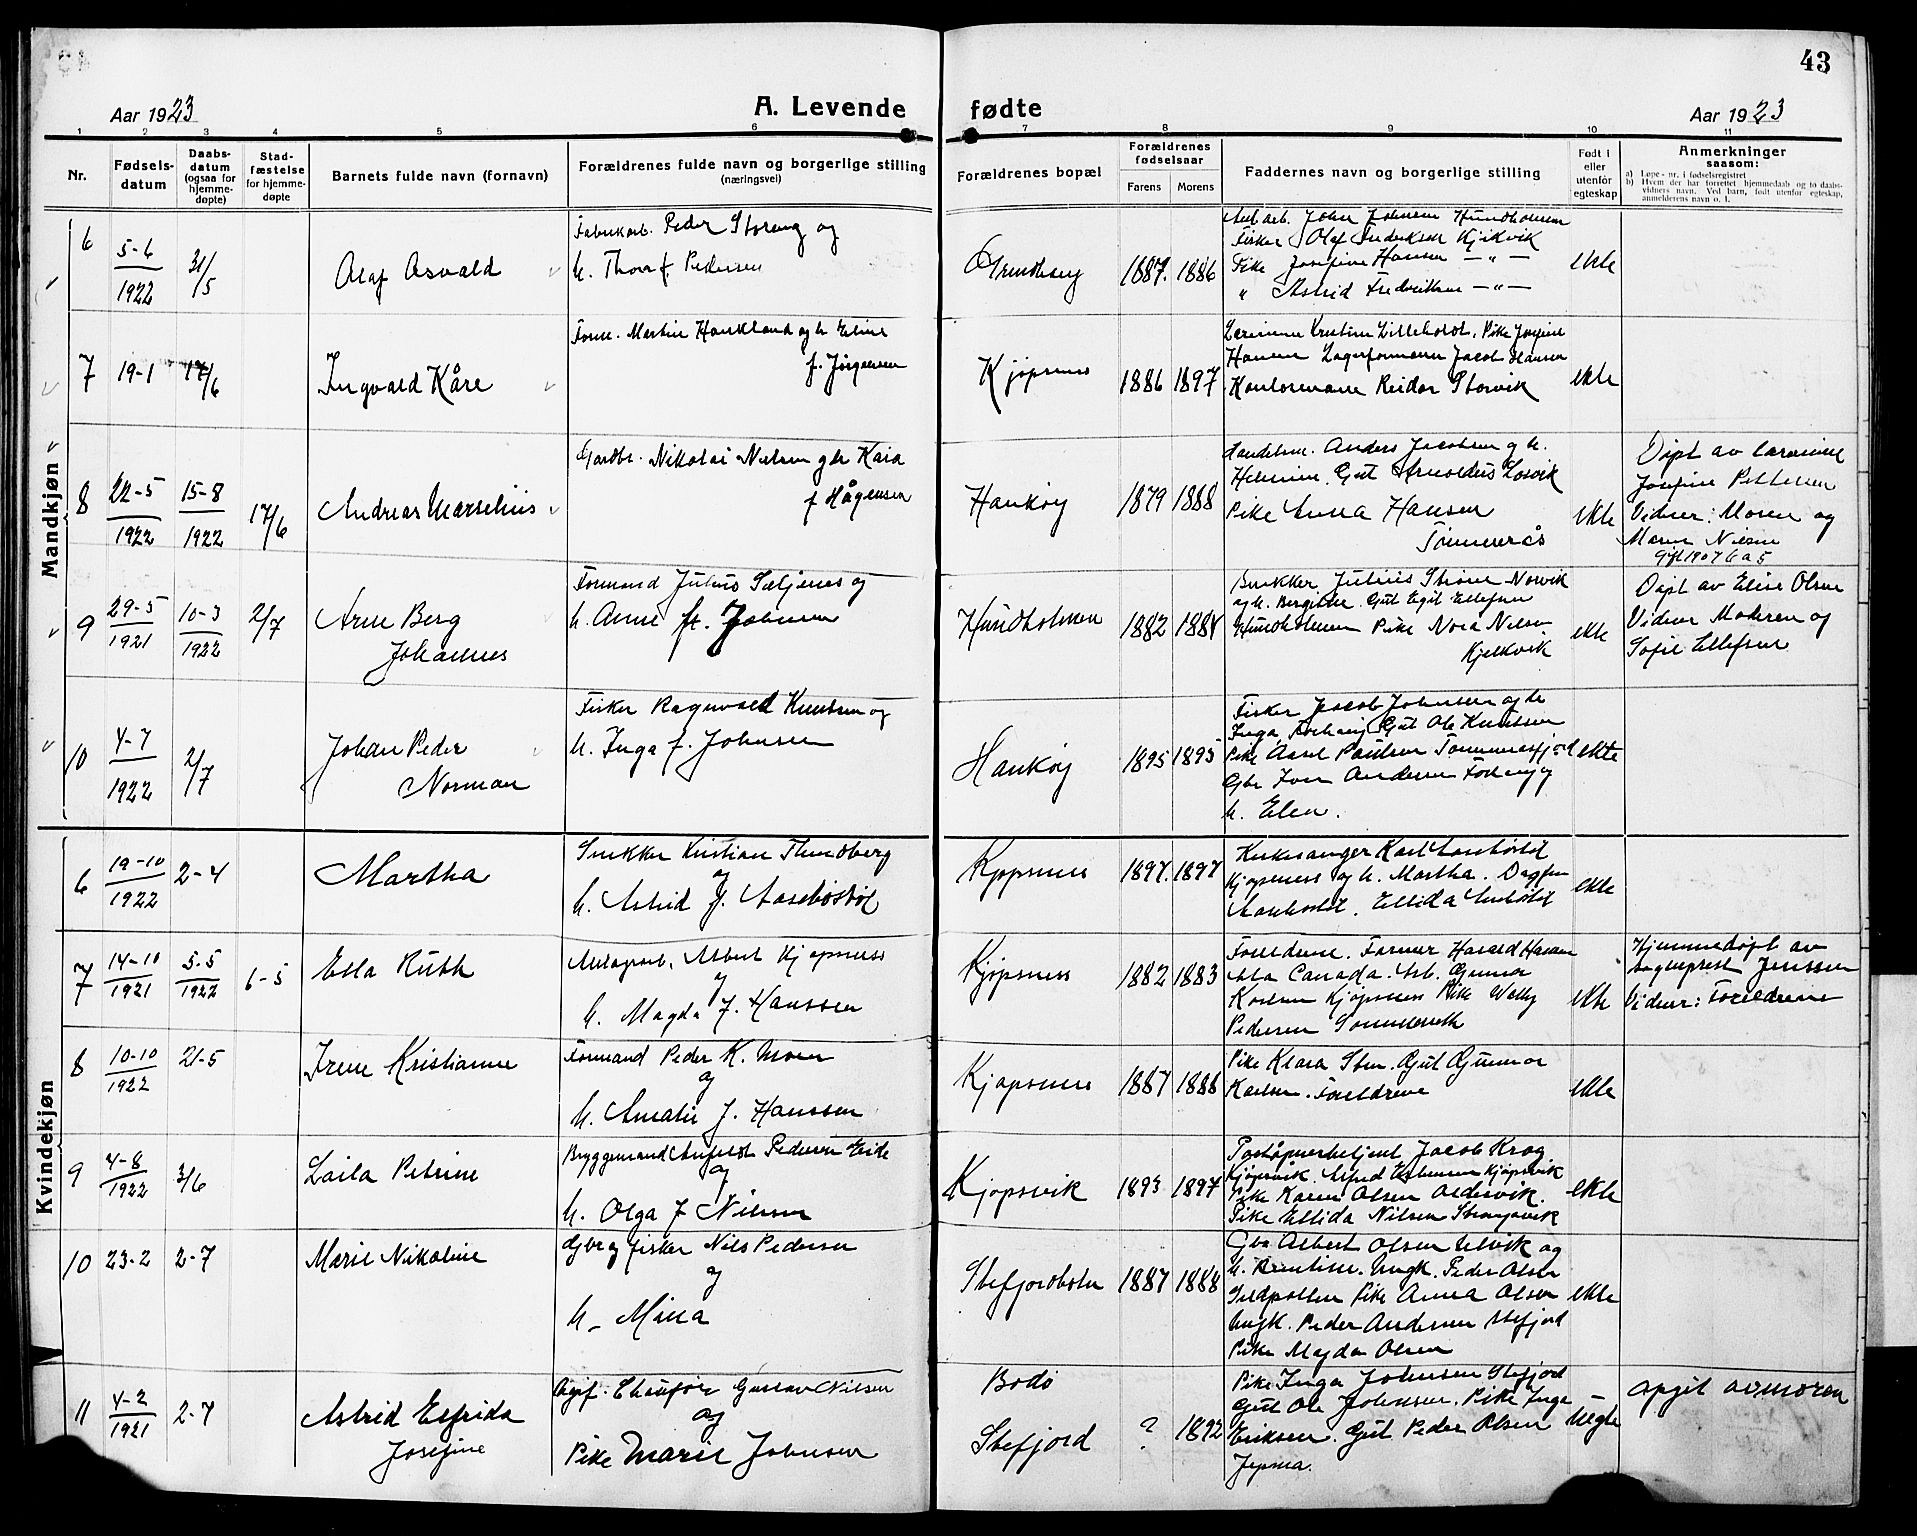 43
Aar 1923
A. Levende fødte
Aar 1923
1 2 3 4 5 6 7 8 9 10 11
Nr.
Fødsels-
datum
Daabs-
datum
(ogsaa for
hjemme-
døpte)
Stad-
fæstelse
for hjemme-
døpte
Barnets fulde navn (fornavn)
Forældrenes fulde navn og borgerlige stilling
(næringsvei)
Forældrenes bopæl
Forældrenes
fødselsaar
Farens Morens
Faddernes navn og borgerlige stilling
Født i
eller
utenfor
egteskap
Anmerkninger
saasom:
a) Løpe-nr. i fødselsregistret
b) Hvem der har forrettet hjemmedaab og to daabs-
vidners navn. Ved barn, født utenfor egteskap,
anmelderens navn o. l.
Mandkjøn
6
5-6
1922
31/5
Olaf Asvald
Fabrikarb. Peder Storeng og
h. Thora f. Pedersen
1887. 1886
John Johnsen Hundholmen
Fisker Olaf Fredriksen Kjelkvik
Pike Josefine Hansen — " —
" Astrid Fredriksen — " —
ekte
7
19-1
17/6
Ingvald Kåre
Form. Martin Haukland og h. Eline
f. Jørgensen
Kjøpsnes
1886 1897
Lærerinne Kristine Lillehold. Pike Josefine
Hansen Lagerformann Jacob Hansen
Kontormann Reidar Storvik
ekte
8
22-5
1922
15-8
1922
17/6
Andreas Marselius
Gardbr. Nikolai Nielsen og h. Kaia
f. Hågensen
Haukøy
1879 1888
Handelsm. Anders Jacobsen og h.
Helmine. Gut Arnoldus Losvik
Pike Anna Hansen
Tømmerås
ekte
Døpt av lærerinne
Josefine Pettersen
Vidner: Moren og
Maren Nielsen
Gift 1907 6 a 5
9
29-5
1921
10-3
1922
2/7
Arne Berg
Johannes
Formand Julius Seljenes og
h. Anne f. Johnsen
Hundholmen
1882 1884
Snekker Julius Strøm Norvik
og h. Bergitte. Gut Egil Ellefsen
Hundholmen Pike Nora Nilsen
Kjelkvik
ekte
Døpt av Elise Olsen
Vidner Moderen og
Sofie Ellefsen
10
4-7
1922
2/7
Johan Peder
Norman
Fisker Ragnvald Knutsen og
h. Inga f. Johnsen
Haukøy
1895 1895
Fisker Jacob Johnsen og h.
Inga, Gut Ole Knutsen
Pike Aasel Paulsen Tømmeråsfjord
Gbr Iver Andersen og
h. Elen.
ekte
Kvindekjøn
6
19-10
1922
2-4
Martha
Snekker Kristian Thundberg
og
h. Astrid f. Aasebøstøl
Kjøpsnes
1897. 1897
Kirkesanger Karl Aasebøstøl
Kjøpsnes og h. Martha. Dagfin
Aasebøstøl. Ellida Aasebøstøl
ekte
7
14-10
1921
5-5
1922
6-5
Ella Ruth
Albert Kjøpsnes
og
h. Magda f. Hanssen
Kjøpsnes
1882 1883
Foreldrene. Farmer Harald Hansen
Canada. Arb. Gunnar
Karlsen Kjøpsnes Pike Welly
Pedersen Sommerseth
ekte
Hjemmedøpt av
sogneprest Jenssen
Vidner: Foreldrene
8
10-10
1922
21-5
Irene Kristianne
Formand Peder K. Moen
og
h. Amalie f. Hanssen
Kjøpsnes
1887 1888
Pike Klara Sten. Gut Gunnar
Karlsen. Foreldrene
ekte
9
4-8
1922
3/6
Laila Petrine
Bryggemand Pedersen
og
h. Olga f Nilsen
Kjøpsvik
1893 1897
Poståpnerbetjent Jacob Krog
Kjøpsvik. Alfred Kjøpsvik
Pike Karen Olsen Oldervik.
Pike Ellida Nilsen
ekte
10
23-2
2-7
Marie Nikoline
Gbr og fisker Nils Pedersen
og
h. Mina
Stefjordbotn
1887 1888
Gbr Albert Olsen og
h. Ungk. Peder Olsen
Indpollen Pike Anna Olsen
Ungk. Peder Andersen Stefjord
Pike Magda Olsen
ekte
11
4-2
1921
2-7
Astrid Elfrida
Josefine
Opgif. Chaufør Gustav Nilsen
og
Pike Marie Johnsen
Bodø
Stefjord
? 1892
Pike Inga Johnsen Stefjord
Gut Ole Johnsen. Pike Inga
Eriksen. Gut Peder Olsen
Uegte
opgit av moren